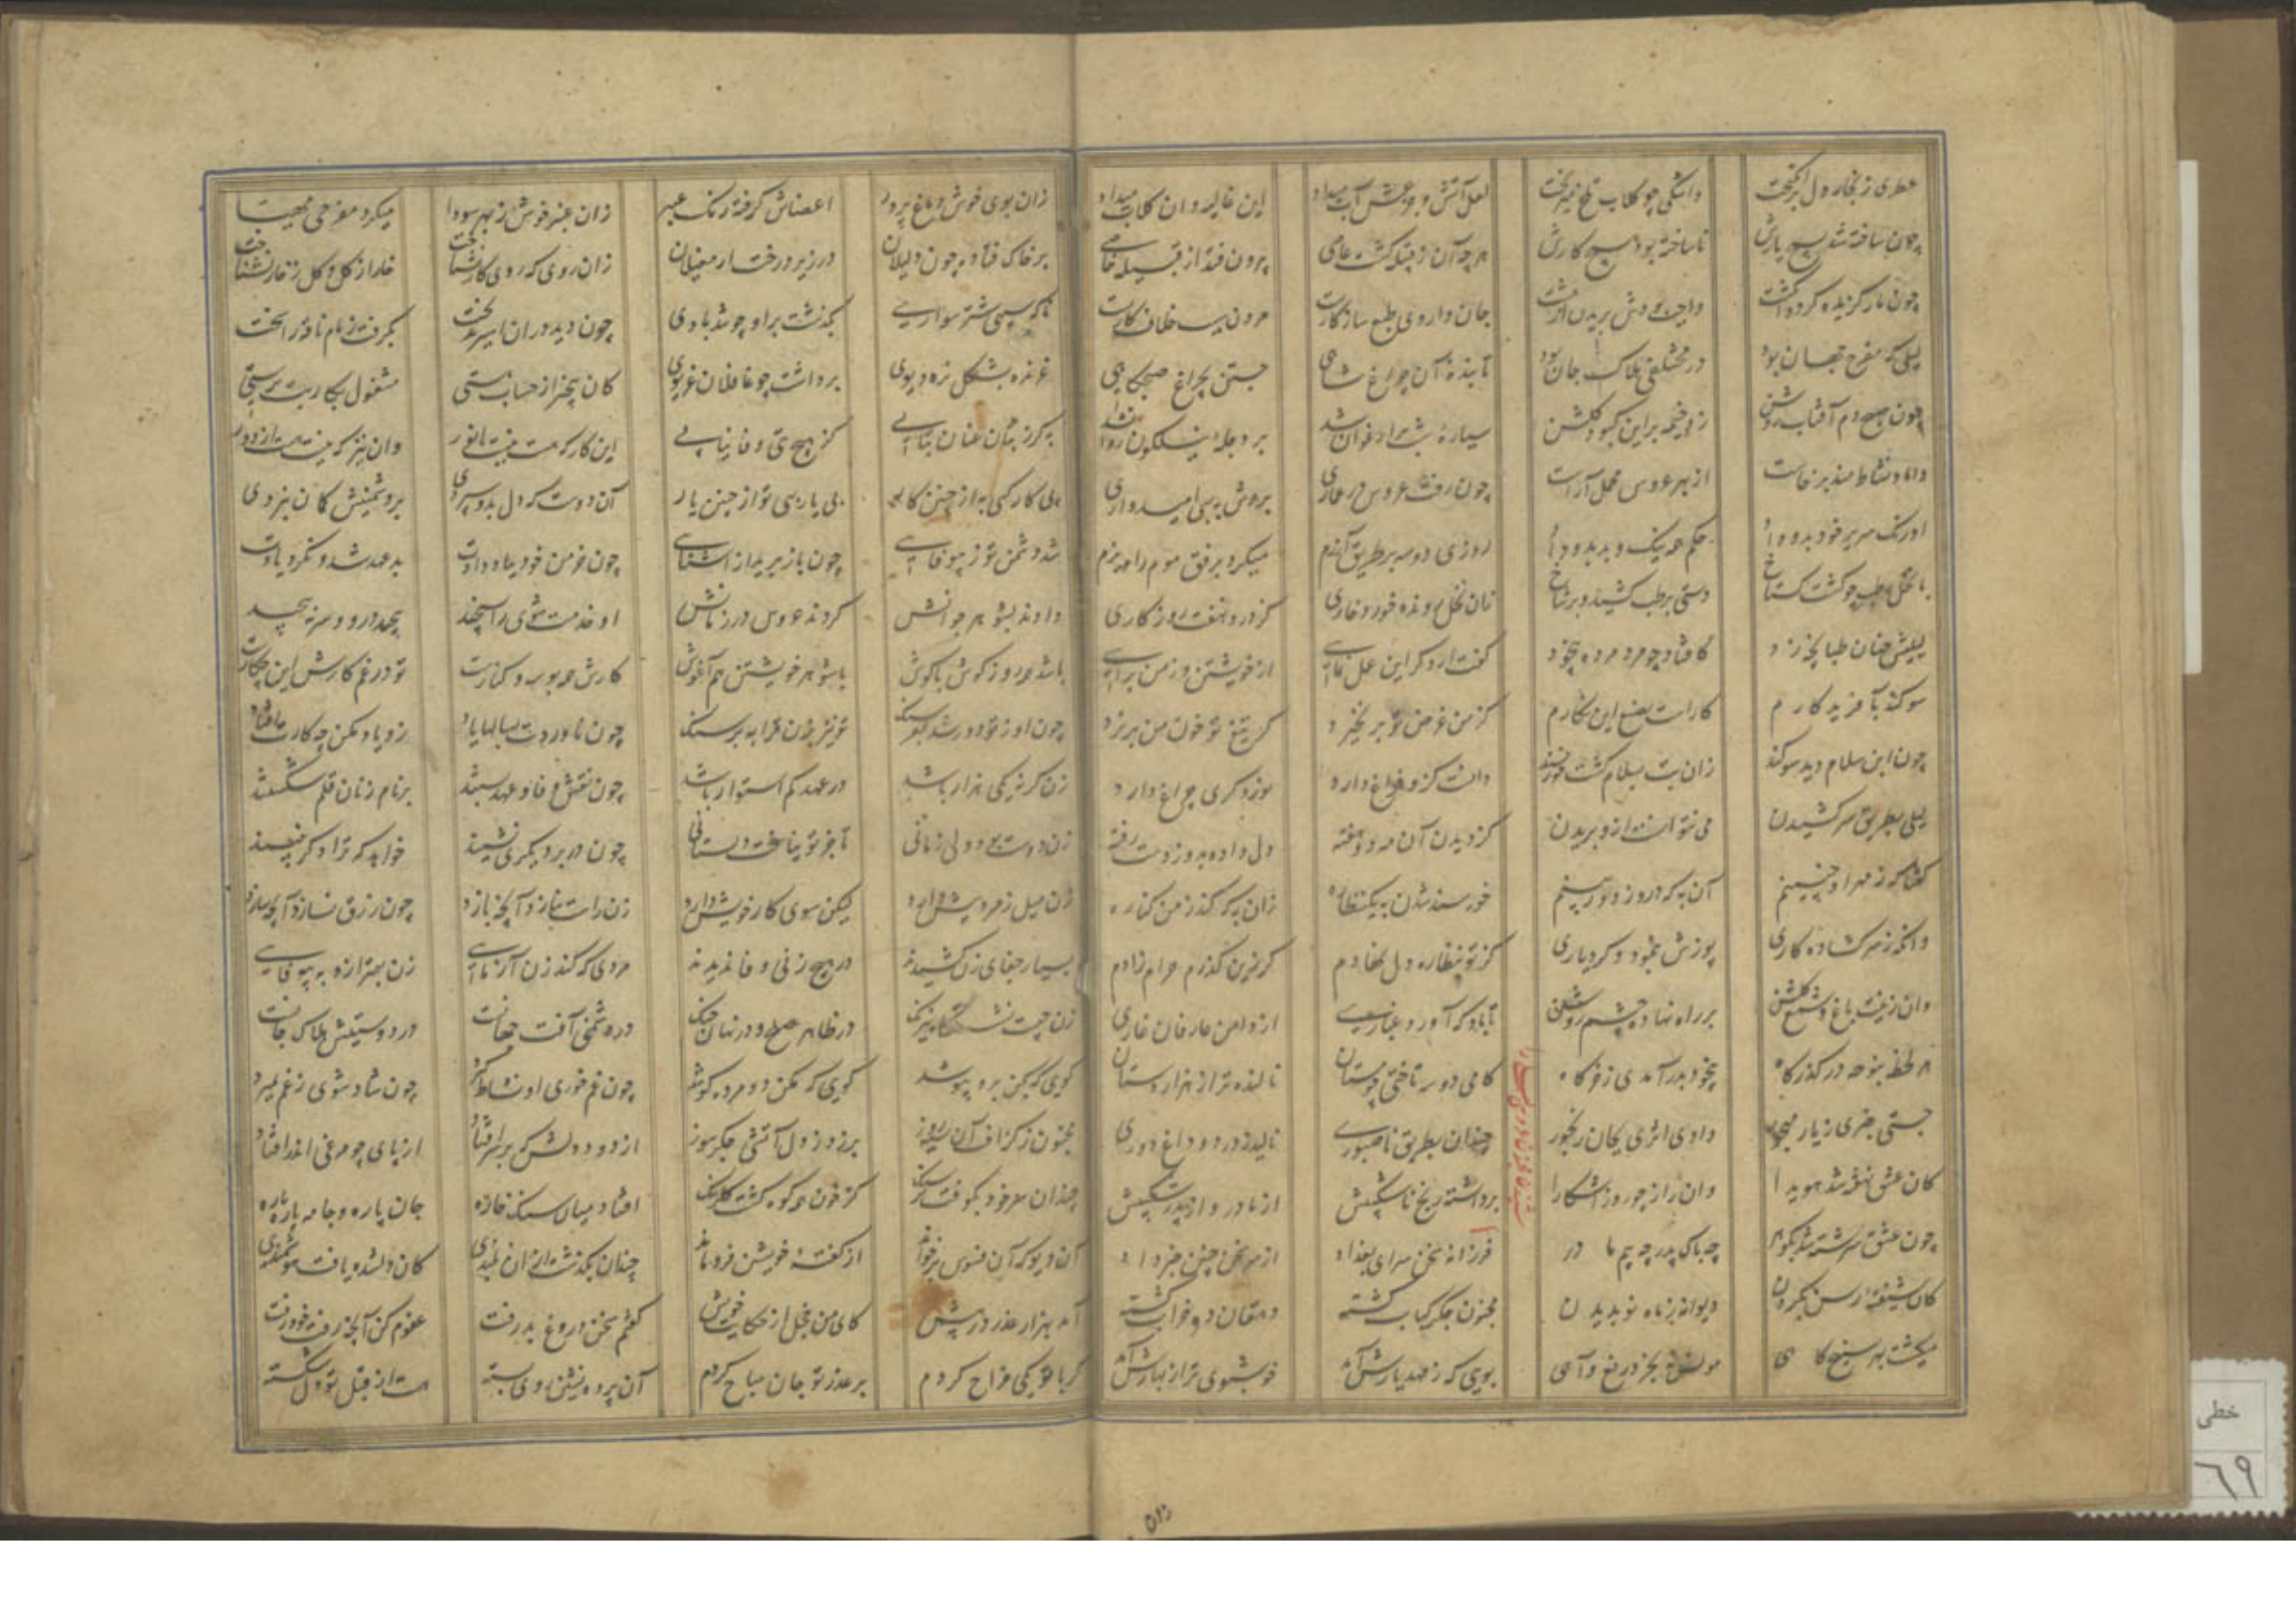 عطری ز بخار دل برانگیخت واشکی چو گلاب تلخ میریخت لعل آتش و جزعش آب میداد این غالیه وان گلاب میداد
چون ساخته شد بسیچ یارش ناساخته بود هیچ کارش هرچه آن ز قبیله گشت عامی بیرون فتد از قبیله خامی
چون مار گزیده گردد انگشت واجب شودش بریدن از مشت جان داروی طبع سازگاریست مردن سبب خلاف کاریست
لیلی که مفرح جهان بود در مختلفی هلاک جان بود تابنده آن چراغ شاهی جستن چراغ صبحگاهی
چون صبح دم آفتاب روشن زد خیمه برین کبود گلشن سیاره شب پر ارغوان شد بر دجله نیلگون روان شد
داماد نشاط مند برخاست از بهر عروس محمل آراست چون رفت عروس در عماری بردش به بسی امیدواری
اورنگ سریر خود بدو داد حکم همه نیک و بد بدو داد روزی دو سه بر طریق آزرم میکرد برفق موم را نرم
با نخل رطب چو گشت گستاخ دستی برطب کشید بر شاخ زان نخل رونده خورد خاری کز درد نخفت روزگاری
لیلیش چنان طپانچه زد کافتاد چو مرده مرد بیخود گفت ار دگر این عمل نمایی از خویشتن و ز من برایی
سوگند بآفریدگارم کاراست بصنع این نگارم کز من غرض تو بر نخیزد گر تیغ تو خون من بریزد
چون ابن سلام دید سوگند زان بت بسلام گشت خرسند دانست کزو فراغ دارد سوز دگری چراغ دارد
لیلی بطریق سر کشیدن می نتوانست ازو بریدن کز دیدن آن مه دو هفته دل داده بدو ز دست رفته
گفتا که ز مهر او چنینم آن به که درو ز دور بینم خورسند شدن به یک نظاره زان به که کند ز من کناره
وانگه ز سر گشاده کاری پوزش بنمود و کرد یاری کز تو بنظاره دل نهادم گر زین گذرم حرام زادم
وان زینت باغ و شمع گلشن بر راه نهاده چشم روشن تا باد کی آورد غباری از دامن عارفان غاری
هر لحظه بنوحه در گذرگاه بیخود بدر آمدی ز خرگاه گامی دو سه تاختی چو مستان نالنده تر از هزار دستان
جستی خبری ز یار مهجور دادی اثری بجان رنجور چندان بطریق ناصبوری نالید ز درد و داغ دوری
کان عشق نهفته شد هویدا وان راز چو روز آشکارا برداشته رنج ناشکیبش از مادر و از پدر شکیبش
چون عشق سرشته شد بگوهر چه باک پدر چه بیم مادر فرزانه سخن سرای بغداد از سر سخن چنین خبر داد
کان شیفته رسن بریدن دیوانه ز ماه نو بدیدن مجنون جگر کباب گشته دهقان ده خراب گشته
میگشت بهر بسیج گاهی مونس نه بجز دریغ و آهی بویی که ز عهد یارش آمد خوشبوی تر از بهارش آمد
زان
زان بوی خوش دماغ پرور اعضاش گرفته رنگ عنبر زان عنبر خوش ز بهر سودا میکرد مفرحی مهیا
بر خاک فتاده چون ذلیلان در زیر درخت ار مغیلان زان روی که روی کار نشناخت خار از گل و گل ز خار نشناخت
ناگه سیهی شتر سواری بگذشت برو چو تند بادی چون دید دران اسیر بی رخت بگرفت زمام ناقه را سخت
غرنده بشکل نره دیوی برداشت چو غافلان غریوی کان بیخبر از حساب هستی مشغول بکار بت پرستی
به گر ز بتان عنان بتابی کز هیچ بتی وفا نیابی این کار که هست نیست با نور وان نیز که نیست هست ازو دور
بی کار کسی به از چنین کار بی یار بهی تو از چنین یار آن دوست که دل بدو سپردی بر دشمنیش گمان نبردی
شد دشمن تو ز بیوفایی چون باز برید از آشنایی چون خرمن خود بباد دادت بد عهد شد و نکرد یادت
دادند بشوهر جوانش کردند عروس در زمانش او خدمت شوی را بسیچد پیچد در او و سر نپیچد
باشد همه روز گوش با گوش با شوهر خویشتن هم آغوش کارش همه بوسه و کنارست تو در غم کارش این چه کارست
چون او ز تو دور شد به فرسنگ تو نیز بزن قرابه بر سنگ چون ناوردت بسالها یاد زو یاد مکن چه کارت افتاد
زن گر نه یکی هزار باشد در عهد کم استوار باشد چون نقش وفا و عهد بستند بر نام زنان قلم شکستند
زن دوست بود ولی زمانی تا جز تو نیافت دستانی چون در بر دیگری نشیند خواهد که ترا دگر نبیند
زن میل ز مرد بیش دارد لیکن سوی کار خویش دارد زن راست نبازد آنچه بازد چون زرق نسازد آنچه سازد
بسیار جفای زن کشیدند در هیچ زنی وفا ندیدند مردی که کند زن آزمایی زن بهتر ازو به بیوفایی
زن چیست نشستگاه نیرنگ در ظاهر صلح و در نهان جنگ در دشمنی آفت جهانست در دوستیش هلاک جانست
گویی که بکن برو نپوشد گویی که مکن دو مرده کوشد چون غم خوری او نشاط گیرد چون شاد شوی ز غم بمیرد
مجنون ز گزاف آن سیه روز بر زد ز دل آتشی جگر سوز از دود دلش که بر سر افتاد از پای چو مرغی اندر افتاد
چندان سر خود بکوفت بر سنگ کز خون همه کوه گشت گلرنگ افتاد میان سنگ خاره جان پاره و جامه پاره پاره
آن دیو که آن فسوس بر خواند از گفته خویشتن فرو ماند چندان بگذشت ازان بلندی کان دلشده یافت هوشمندی
آمد بهزار عذر در پیش کای من خجل از حکایت خویش گفتم سخن دروغ بد رفت عفوم کن آنچه رفت خود رفت
گر با تو یکی مزاح کردم بر عذر تو جان مباح کردم آن پرده نشین روی بسته هست از قبل تو دل شکسته
خطی
٦٩